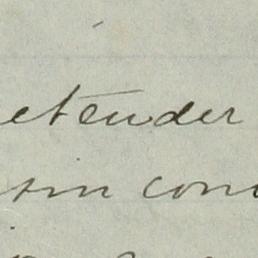 etender
sin con